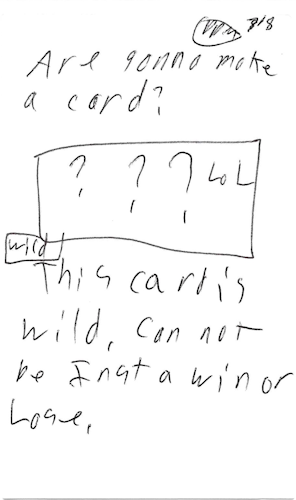 Are gonna make
a card?
? ? ? LOL
wild
This card is
wild, Can not
be Inst a win or
Lose.